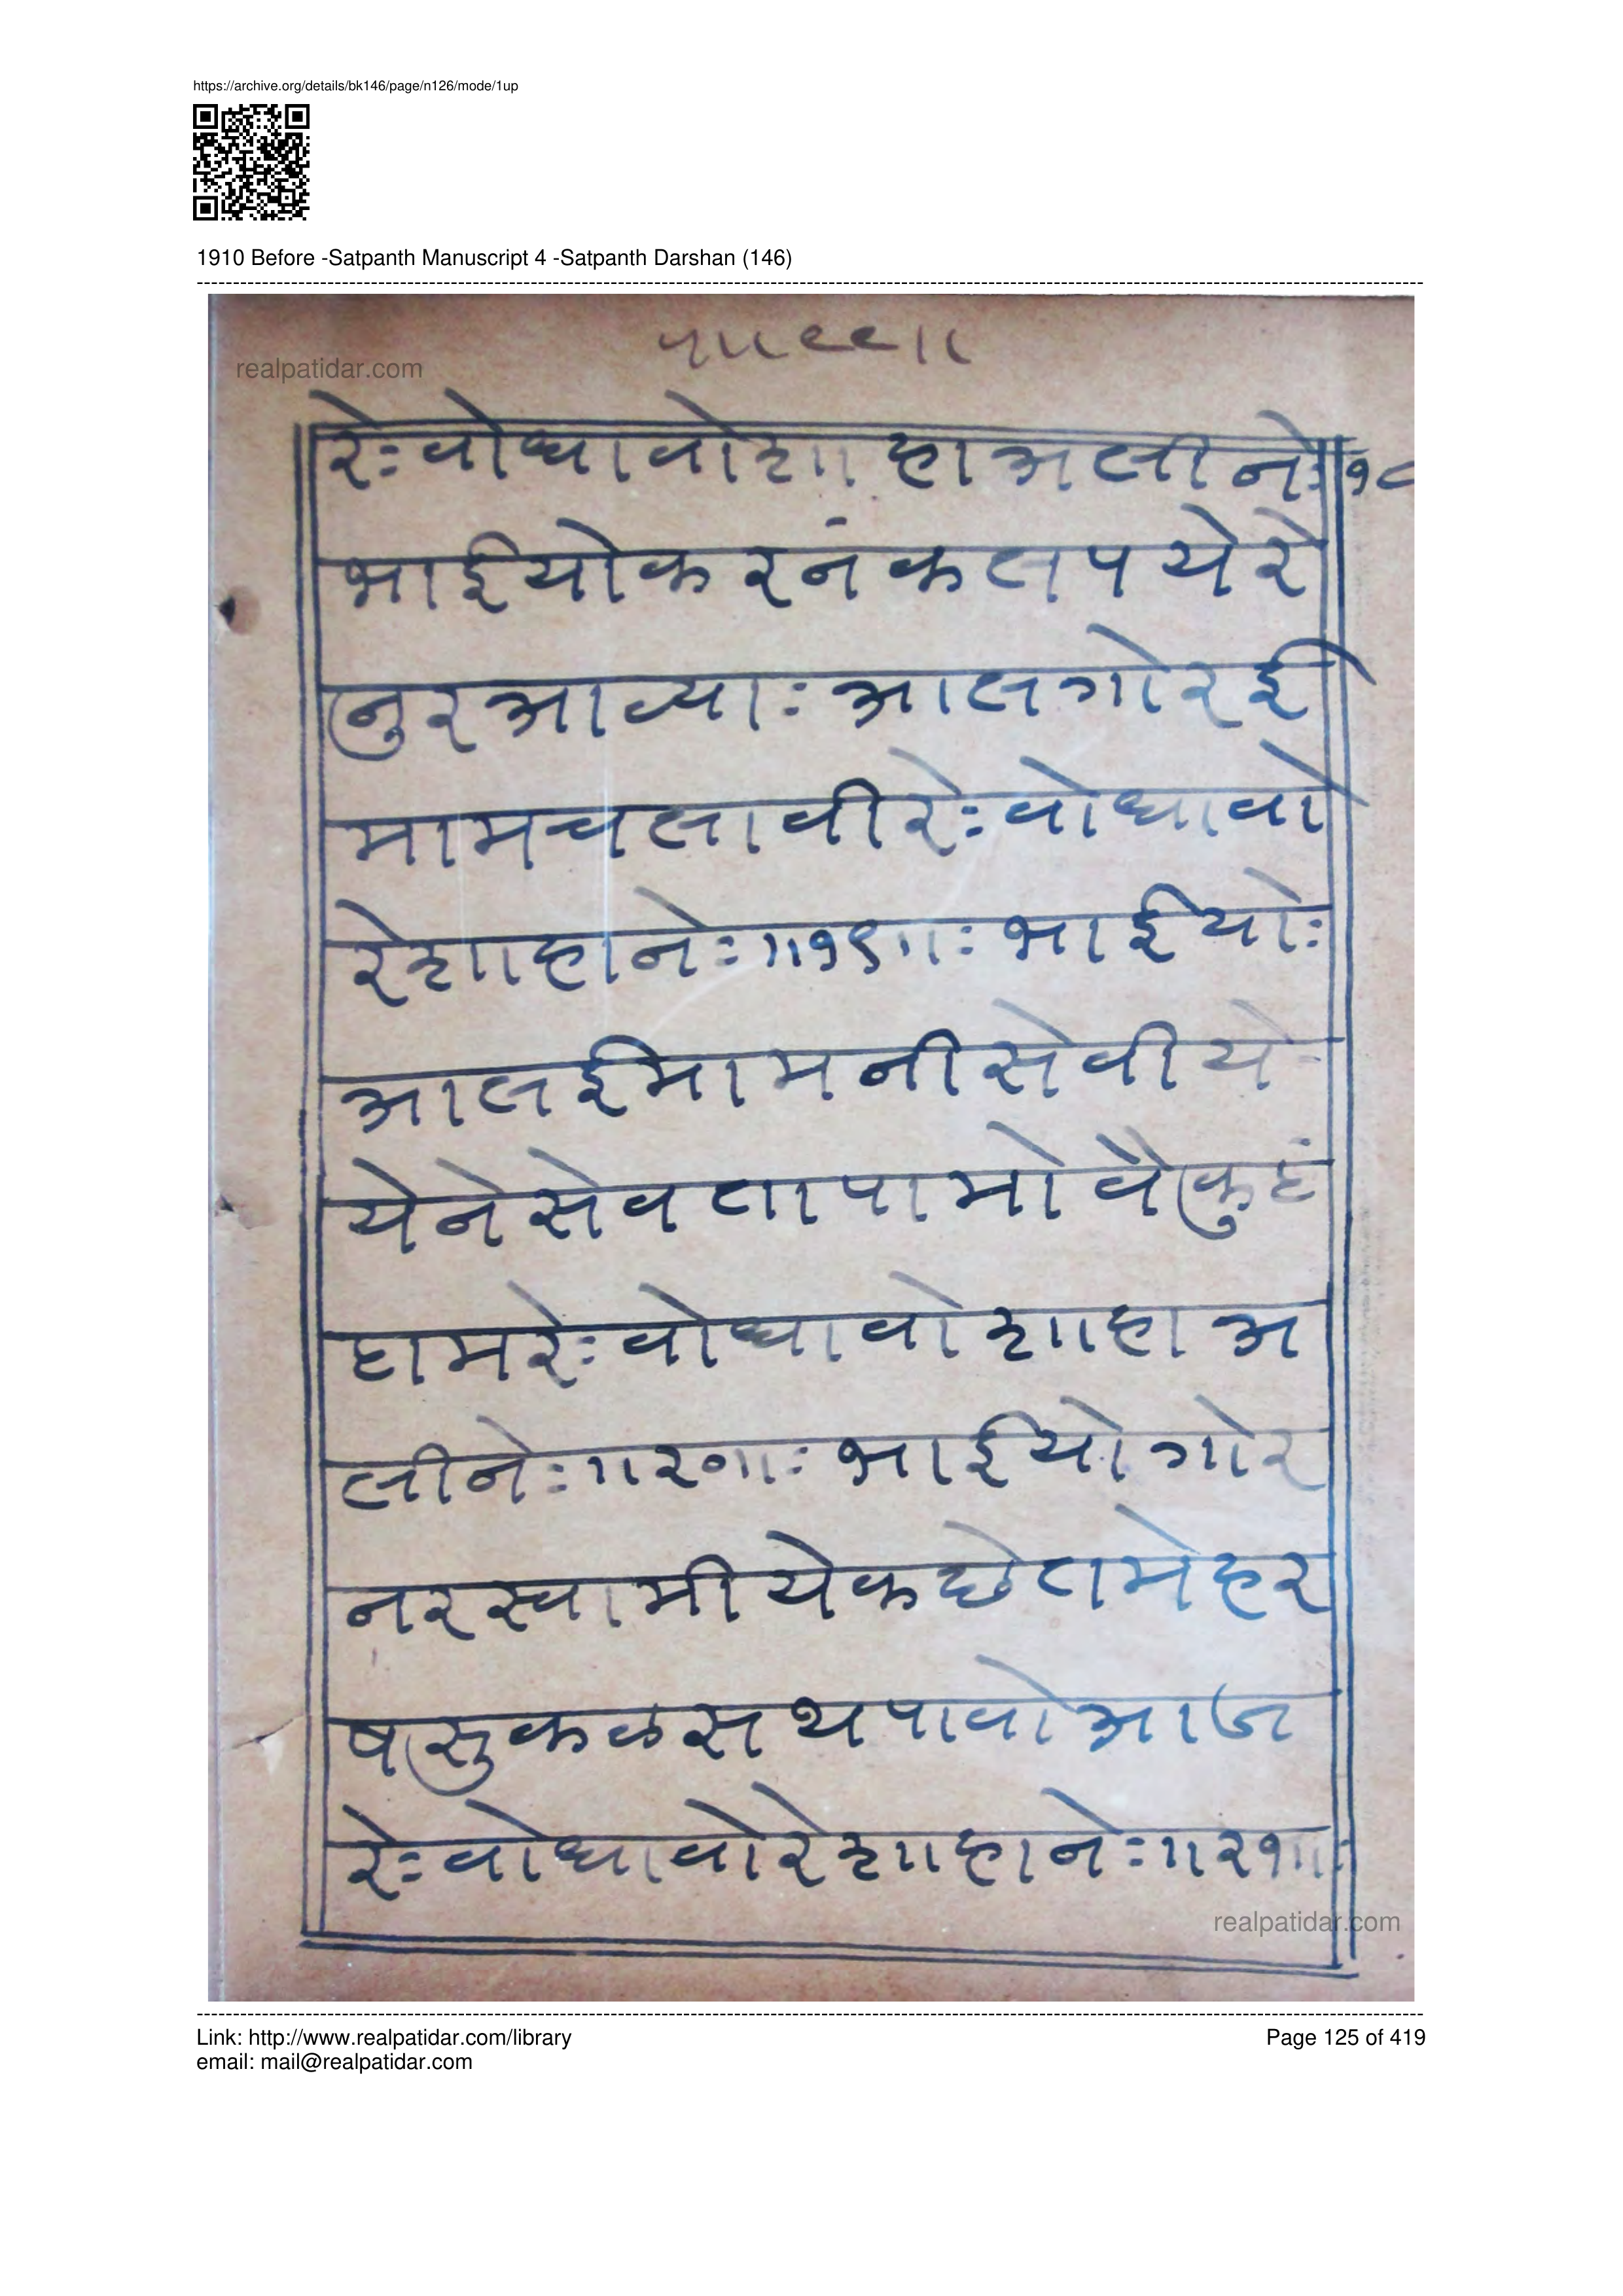 https://archive.org/details/bk146/page/n126/mode/1up
1910 Before -Satpanth Manuscript 4 -Satpanth Darshan (146)
realpatidar.com
रेःवोधावोशाहाअलीनेः॥१८
भाईयोकरनंकलपयेरे
नुरआव्याःआलगोरई
मामचलावीरेःवोधावो
रेशाहानेः॥१९॥ःभाईयोः
आलईमामनीसेवीये
येनेसेवतापामोवैकुठं
ठामरेःवोधावोशाहाअ
लीनेः॥२०॥ःभाईयोगोर
नरस्वामीयेकछेतमेहर
षसुकळसथपावोआज
रेःवोधावोरेशाहानेः॥२१॥ः
realpatidar.com
Link: http://www.realpatidar.com/library
Page 125 of 419
email: mail@realpatidar.com